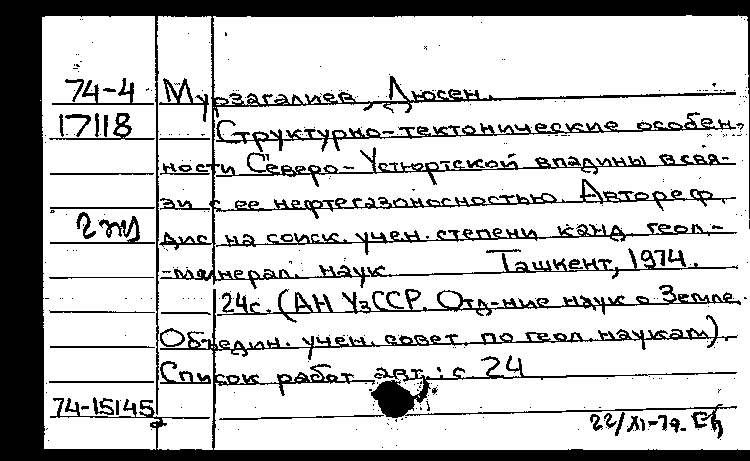 74-4 Мурзагалиев, Дюсен.
17118 Структурно-тектонические особен-
ности Северо-Устюртской впадины в свя-
зи с ее нефтегазоносностью. Автореф.
дис на соиск. учен. степени канд. геол.-
-минерал. наук Ташкент, 1974.
24с. (АН УзССР. Отд-ние наук о Земле.
Объедин. учен. совет. по геол. наукам).
Список работ авт.: с 24
74-15145
22/XI-79.